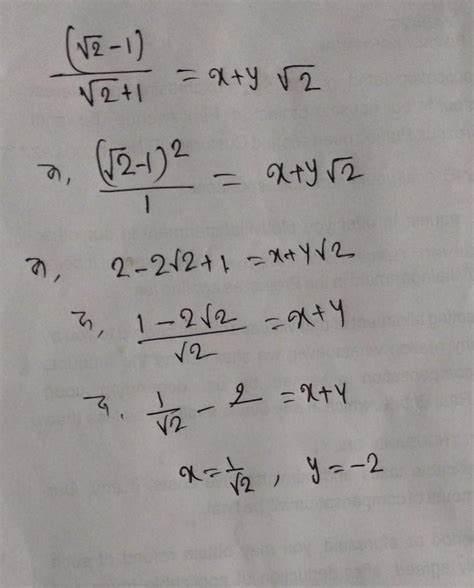 (√2-1)/(√2+1) = x+y √2
(√2-1)²/1 = x+y√2
2-2√2+1 = x+y√2
(1-2√2)/√2 = x+y
1/√2 - 2 = x+y
x = 1/√2 , y = -2